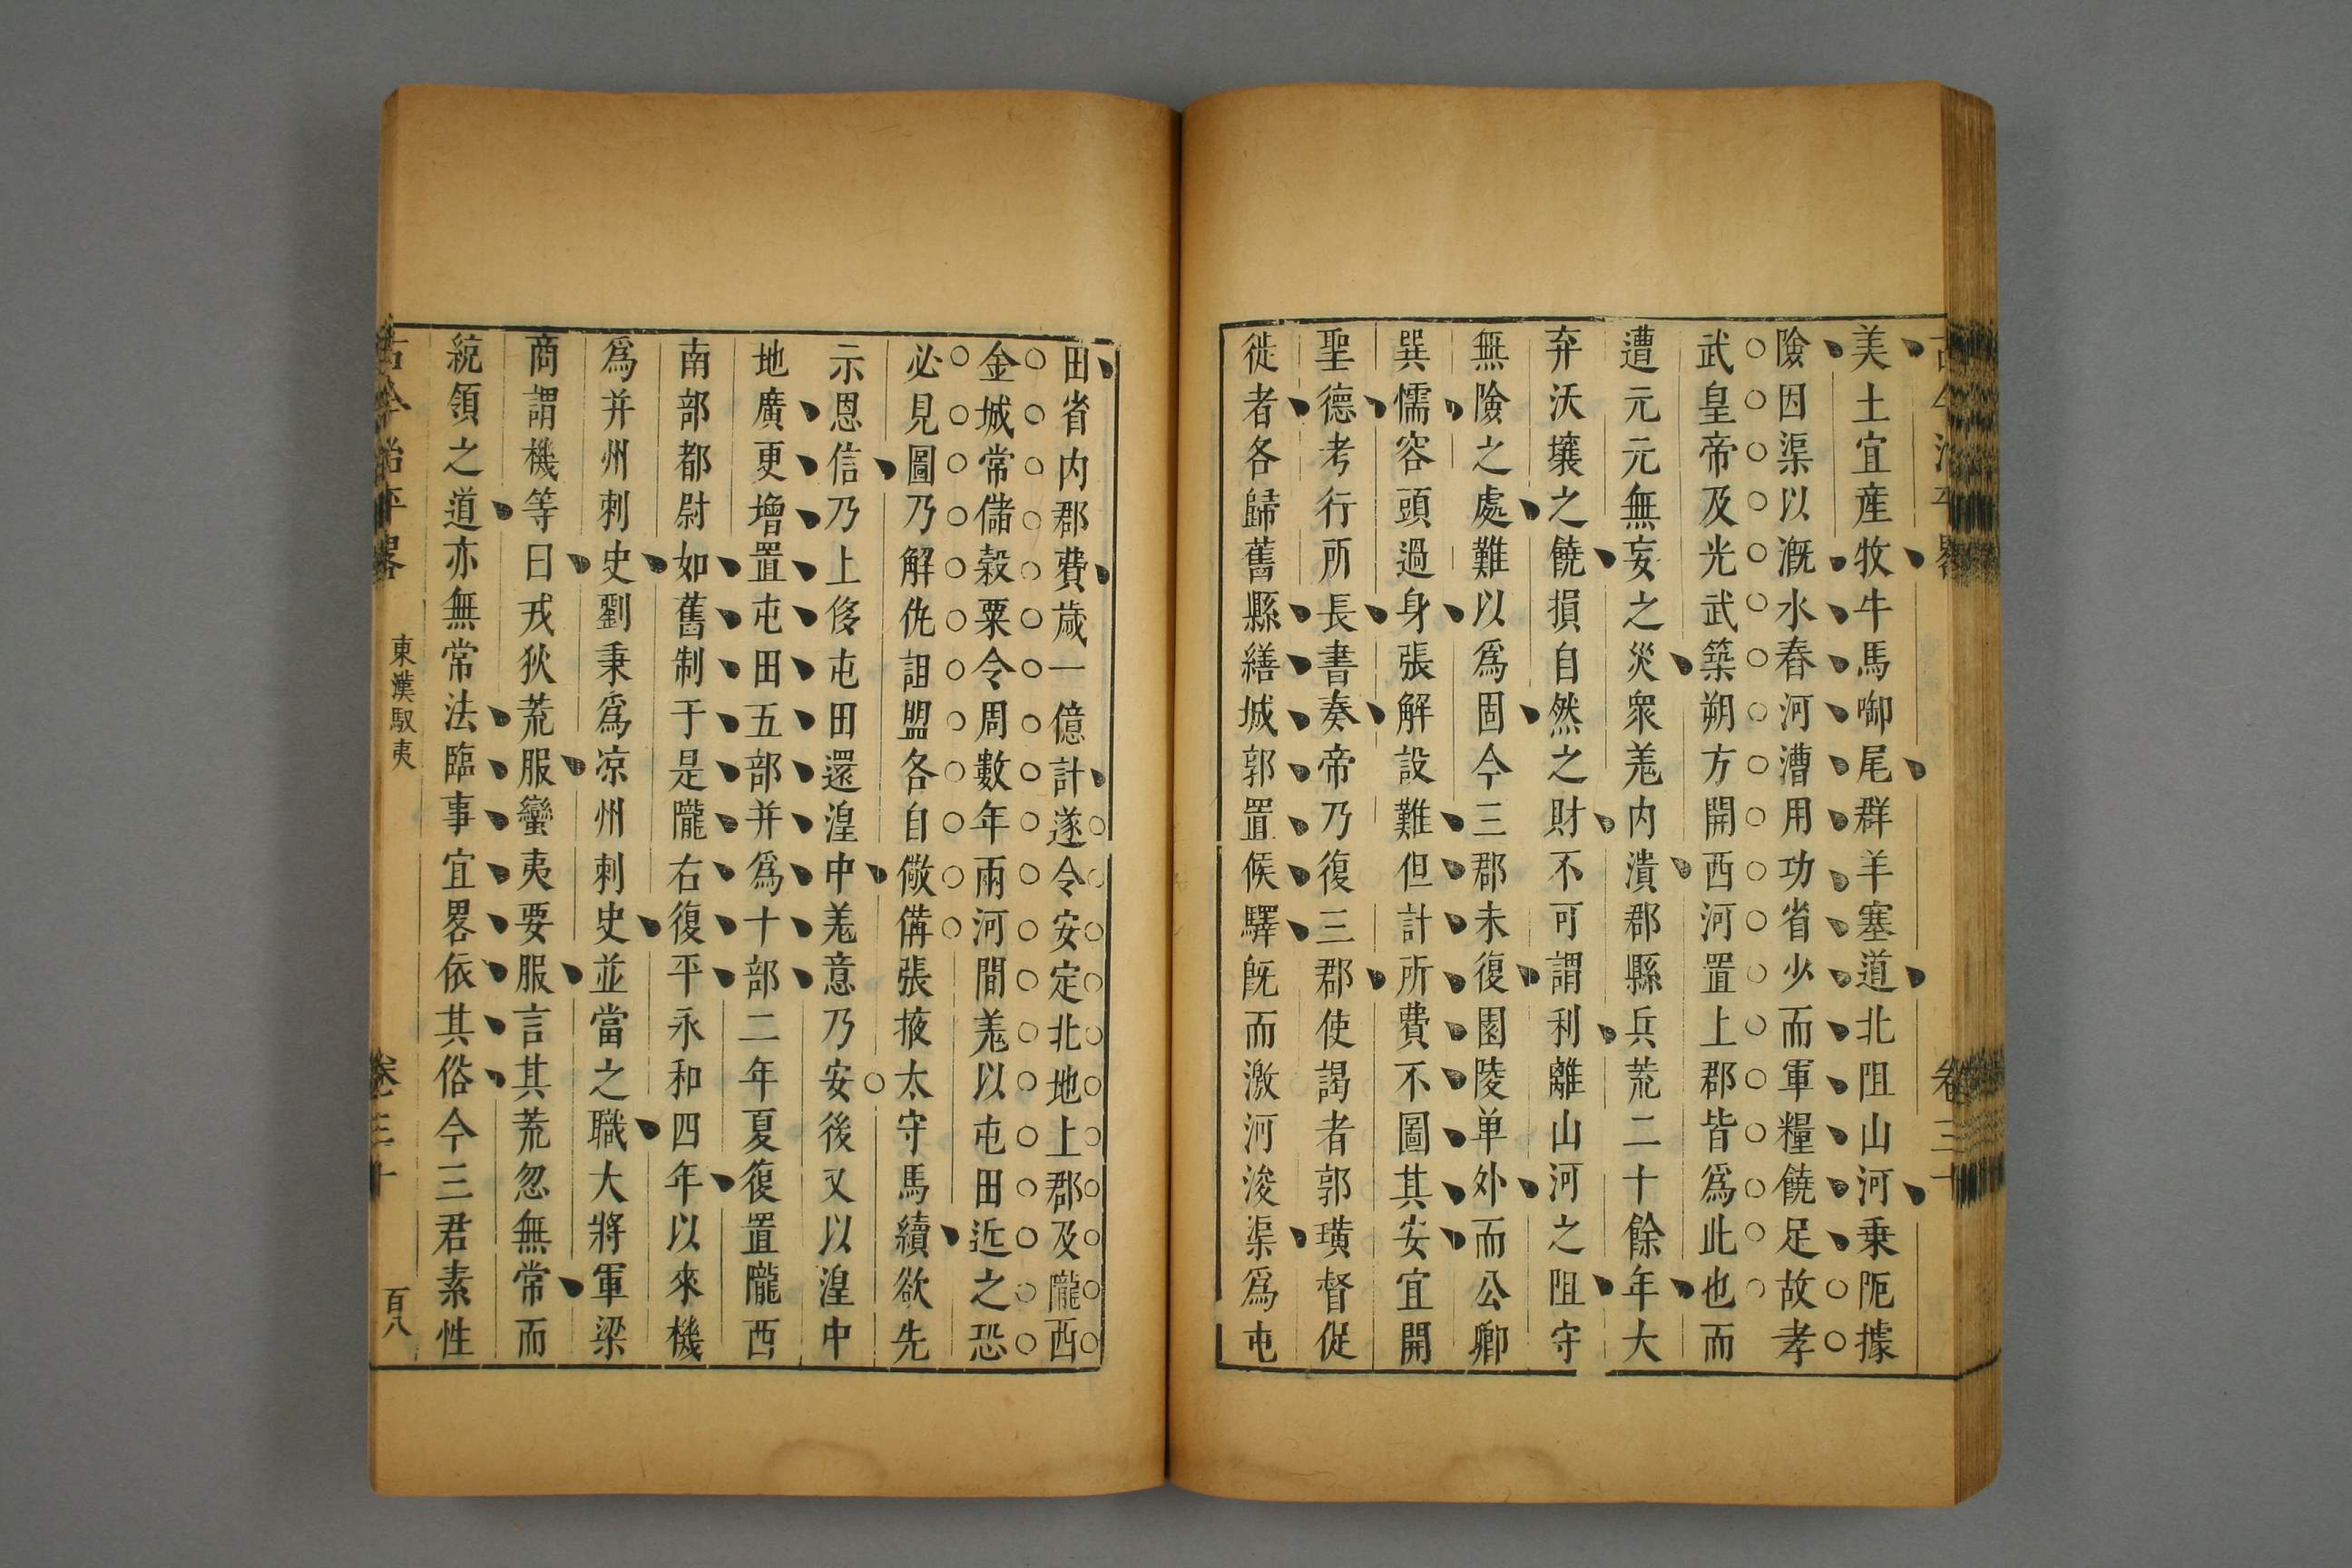 美土宜産牧牛馬啣尾群羊塞道北阻山河乗阨據
險因渠以漑水舂河漕用功省少而軍糧饒足故孝
武皇帝及光武築朔方開西河置上郡皆爲此也而
遭元元無妄之災衆羗内潰郡縣兵荒二十餘年大
弃沃壤之饒損自然之財不可謂利離山河之阻守
無險之處難以爲固今三郡未復園陵单外而公卿
巽懦容頭過身張解設難但計所費不圖其安宜開
聖德考行所長書奏帝乃復三郡使謁者郭璜督促
徙者各歸舊縣繕城郭置候驛旣而激河浚渠爲屯
田省内郡費歲一億計遂令安定北地上郡及隴西
金城常儲穀粟令周數年兩河間羗以屯田近之恐
必見圖乃解仇詛盟各自儆備張掖太守馬續欲先
示恩信乃上俢屯田還湟中羗意乃安後又以湟中
地廣更增置屯田五部并爲十部二年夏復置隴西
南部都尉如舊制于是隴右復平永和四年以來機
爲并州刺史劉秉爲凉州刺史並當之職大將軍梁
商謂機等曰戎狄荒服蠻夷要服言其荒忽無常而
統領之道亦無常法臨事宜畧依其俗今三君素性
古今治平畧
東漢馭夷
卷三十
百八